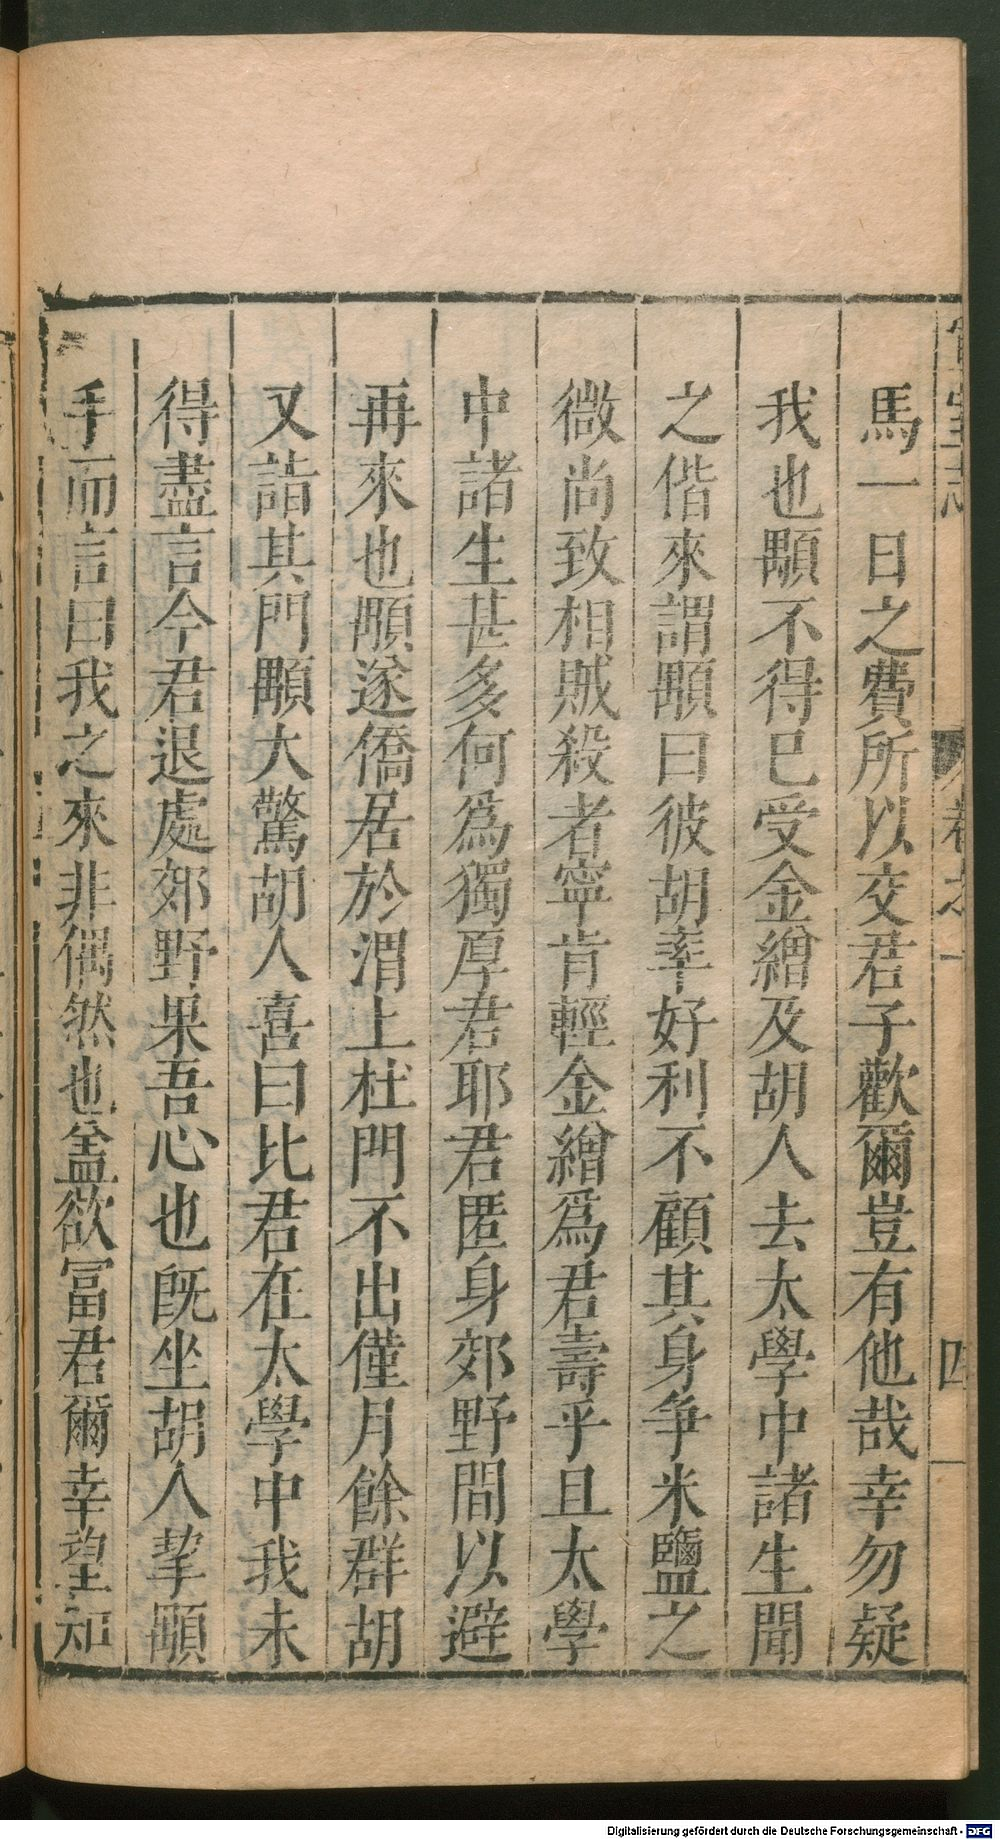 馬一日之費所以交君子歡爾豈有他哉幸勿疑
我也顒不得已受金繒及胡人去太學中諸生聞
之偕來謂顒曰彼胡率好利不顧其身爭米鹽之
微尚致相賊殺者寧肯輕金繒爲君壽乎且太學
中諸生甚多何爲獨厚君耶君匿身郊野間以避
再來也顒遂僑居於渭上杜門不出僅月餘群胡
又詣其門顒大驚胡人喜曰比君在太學中我未
得盡言今君退處郊野果吾心也旣坐胡人挈顒
手而言曰我之來非偶然也盖欲富君爾幸望知
卷之
四
Digitalisierung gefördert durch die Deutsche Forschungsgemeinschaft - DFG